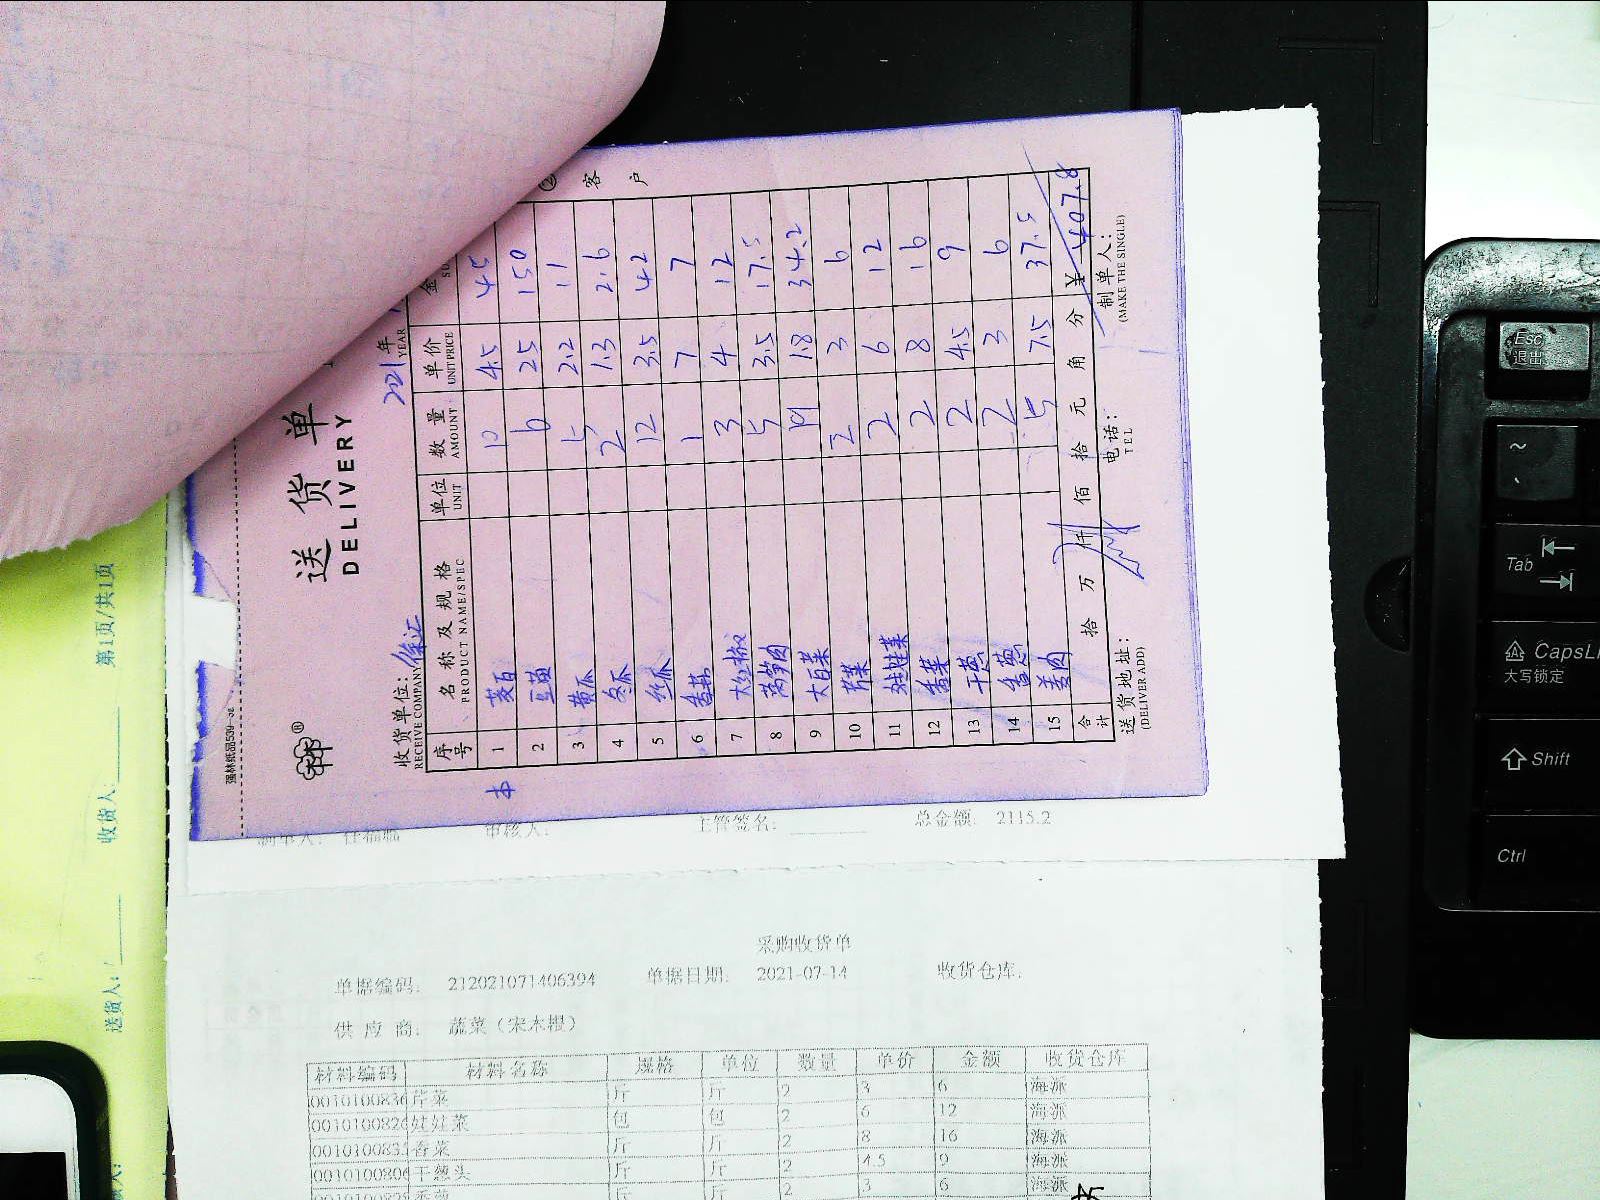 送货单
DELIVERY
2021年
YEAR
② 客户
强林纸品539
收货单位: 徐汇
RECEIVE COMPANY
序号 名称及规格 单位 数量 单价 金
PRODUCT NAME/SPEC UNIT AMOUNT UNITPRICE
1 茭白 10 4.5 45
2 豆苗 6 25 150
3 黄瓜 5 2.2 11
4 冬瓜 2 1.3 2.6
5 丝瓜 12 3.5 42
6 香菇 1 7 7
7 大红椒 3 4 12
8 莴笋肉 5 3.5 17.5
9 大白菜 19 1.8 34.2
10 芹菜 2 3 6
11 娃娃菜 2 6 12
12 香菜 2 8 16
13 干葱 2 4.5 9
14 香葱 2 3 6
15 姜肉 5 7.5 37.5
合计 拾 万 仟 佰 拾 元 角 分 ¥ 407.8
送货地址: 电话: 制单人:
(DELIVER ADD) TEL (MAKE THE SINGLE)
制单人: 任福临 审核人: 主管签名: 总金额: 2115.2
采购收货单
单据编码: 212021071406394 单据日期: 2021-07-14 收货仓库:
供应商: 蔬菜(宋木根)
材料编码 材料名称 规格 单位 数量 单价 金额 收货仓库
0010100836 芹菜 斤 斤 2 3 6 海派
001010082 娃娃菜 包 包 2 6 12 海派
001010083 香菜 斤 斤 2 8 16 海派
001010080 干葱头 斤 斤 2 4.5 9 海派
斤 斤 2 3 6 海派
第1页/共1页
收货人:
送货人:
Esc
退出
~
Tab
CapsL
大写锁定
Shift
Ctrl